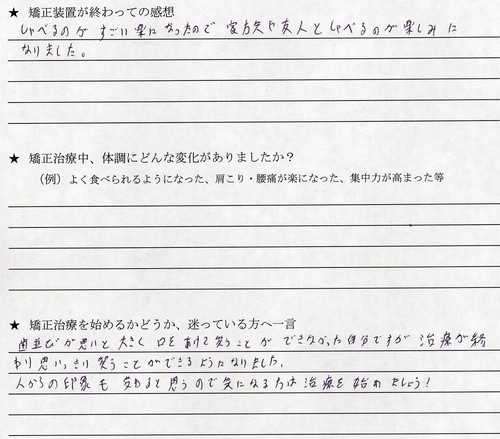 ★ 矯正装置が終わっての感想
しゃべるのが すごい楽になったので 家族や友人としゃべるのが楽しみに
なりました。
★ 矯正治療中、体調にどんな変化がありましたか？
（例）よく食べられるようになった、肩こり・腰痛が楽になった、集中力が高まった等
★ 矯正治療を始めるかどうか、迷っている方へ一言
歯並びが悪いと 大きく 口をあけて笑うことが できなかった自分ですが 治療が終
わり思いっきり笑うことができるようになりました。
人からの印象も 変わると思うので気になる方は治療を始めましょう！